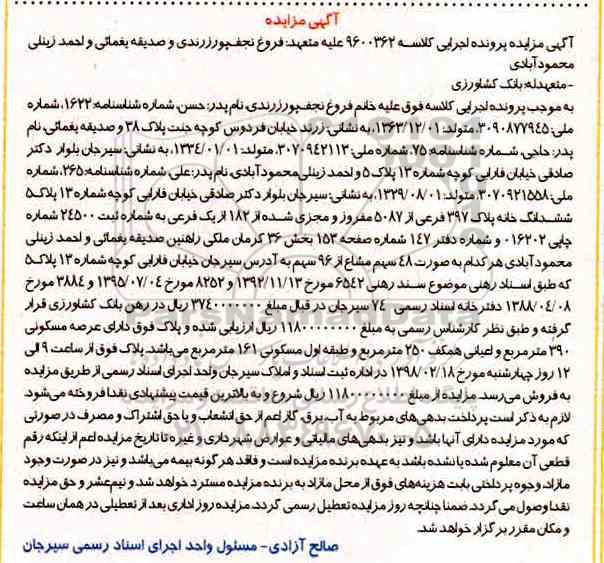 آگهی مزایده
آگهی مزایده پرونده اجرایی کلاسه ۹۶۰۰۳۶۲ علیه متعهد: فروغ نجف‌پورزرندی و صدیقه یغمائی و احمد زینلی
محمودآبادی
-متعهدله: بانک کشاورزی
به موجب پرونده اجرایی کلاسه فوق علیه خانم فروغ نجف‌پورزرندی، نام پدر: حسن، شماره شناسنامه: ۱۶۲۲، شماره
ملی: ۳۰۹۰۸۷۷۹۴۵، متولد: ۱۳۶۳/۱۲/۰۱، به نشانی: زرند خیابان فردوس کوچه جنت پلاک ۳۸ و صدیقه یغمائی، نام
پدر: حاجی، شماره شناسنامه: ۷۵، شماره ملی: ۳۰۷۰۹۴۲۱۱۳، متولد: ۱۳۳۴/۰۱/۰۱، به نشانی: سیرجان بلوار دکتر
صادقی خیابان فارابی کوچه شماره ۱۳ پلاک ۵ و احمد زینلی‌محمودآبادی، نام پدر: علی، شماره شناسنامه: ۲۶۵، شماره
ملی: ۳۰۷۰۹۲۱۵۵۸، متولد: ۱۳۲۹/۰۸/۰۱، به نشانی: سیرجان بلوار دکتر صادقی خیابان فارابی کوچه شماره ۱۳ پلاک۵
ششدانگ خانه پلاک ۳۹۷ فرعی از ۵۰۸۷ مفروز و مجزی شده از ۱۸۲ از یک فرعی به شماره ثبت ۲۴۵۰۰ شماره
چاپی ۰۱۶۲۰۲ و شماره دفتر ۱۴۷ شماره صفحه ۱۵۳ بخش ۳۶ کرمان ملکی راهنین صدیقه یغمائی و احمد زینلی
محمودآبادی هر کدام به صورت ۴۸ سهم مشاع از ۹۶ سهم به آدرس سیرجان خیابان فارابی کوچه شماره ۱۳ پلاک۵
که طبق اسناد رهنی موضوع سند رهنی ۶۵۴۲ مورخ ۱۳۹۲/۱۱/۱۳ و ۸۲۵۲ مورخ ۱۳۹۵/۰۷/۰۴ و ۳۸۸۴ مورخ
۱۳۸۸/۰۴/۰۸ دفترخانه اسناد رسمی ۷۴ سیرجان در قبال مبلغ ۳۷۴۰۰۰۰۰۰۰ ریال در رهن بانک کشاورزی قرار
گرفته و طبق نظر کارشناس رسمی به مبلغ ۱۱۸۰۰۰۰۰۰۰۰ ریال ارزیابی شده و پلاک فوق دارای عرصه مسکونی
۳۹۰ مترمربع و اعیانی همکف ۲۵۰ مترمربع و طبقه اول مسکونی ۱۶۱ مترمربع می‌باشد. پلاک فوق از ساعت ۹ الی
۱۲ روز چهارشنبه مورخ ۱۳۹۸/۰۲/۱۸ در اداره ثبت اسناد و املاک سیرجان واحد اجرای اسناد رسمی از طریق مزایده
به فروش می‌رسد. مزایده از مبلغ ۱۱۸۰۰۰۰۰۰۰۰ ریال شروع و به بالاترین قیمت پیشنهادی نقدا فروخته می‌شود.
لازم به ذکر است پرداخت بدهی‌های مربوط به آب، برق، گاز اعم از حق انشعاب و یا حق اشتراک و مصرف در صورتی
که مورد مزایده دارای آنها باشد و نیز بدهی‌های مالیاتی و عوارض شهرداری و غیره تا تاریخ مزایده اعم از اینکه رقم
قطعی آن معلوم شده یا نشده باشد به عهده برنده مزایده است و فاقد هر گونه بیمه می‌باشد و نیز در صورت وجود
مازاد، وجوه پرداختی بابت هزینه‌های فوق از محل مازاد به برنده مزایده مسترد خواهد شد و نیم‌عشر و حق مزایده
نقدا وصول می گردد. ضمنا چنانچه روز مزایده تعطیل رسمی گردد، مزایده روز اداری بعد از تعطیلی در همان ساعت
و مکان مقرر برگزار خواهد شد.
صالح آزادی- مسئول واحد اجرای اسناد رسمی سیرجان
ParsNamadData